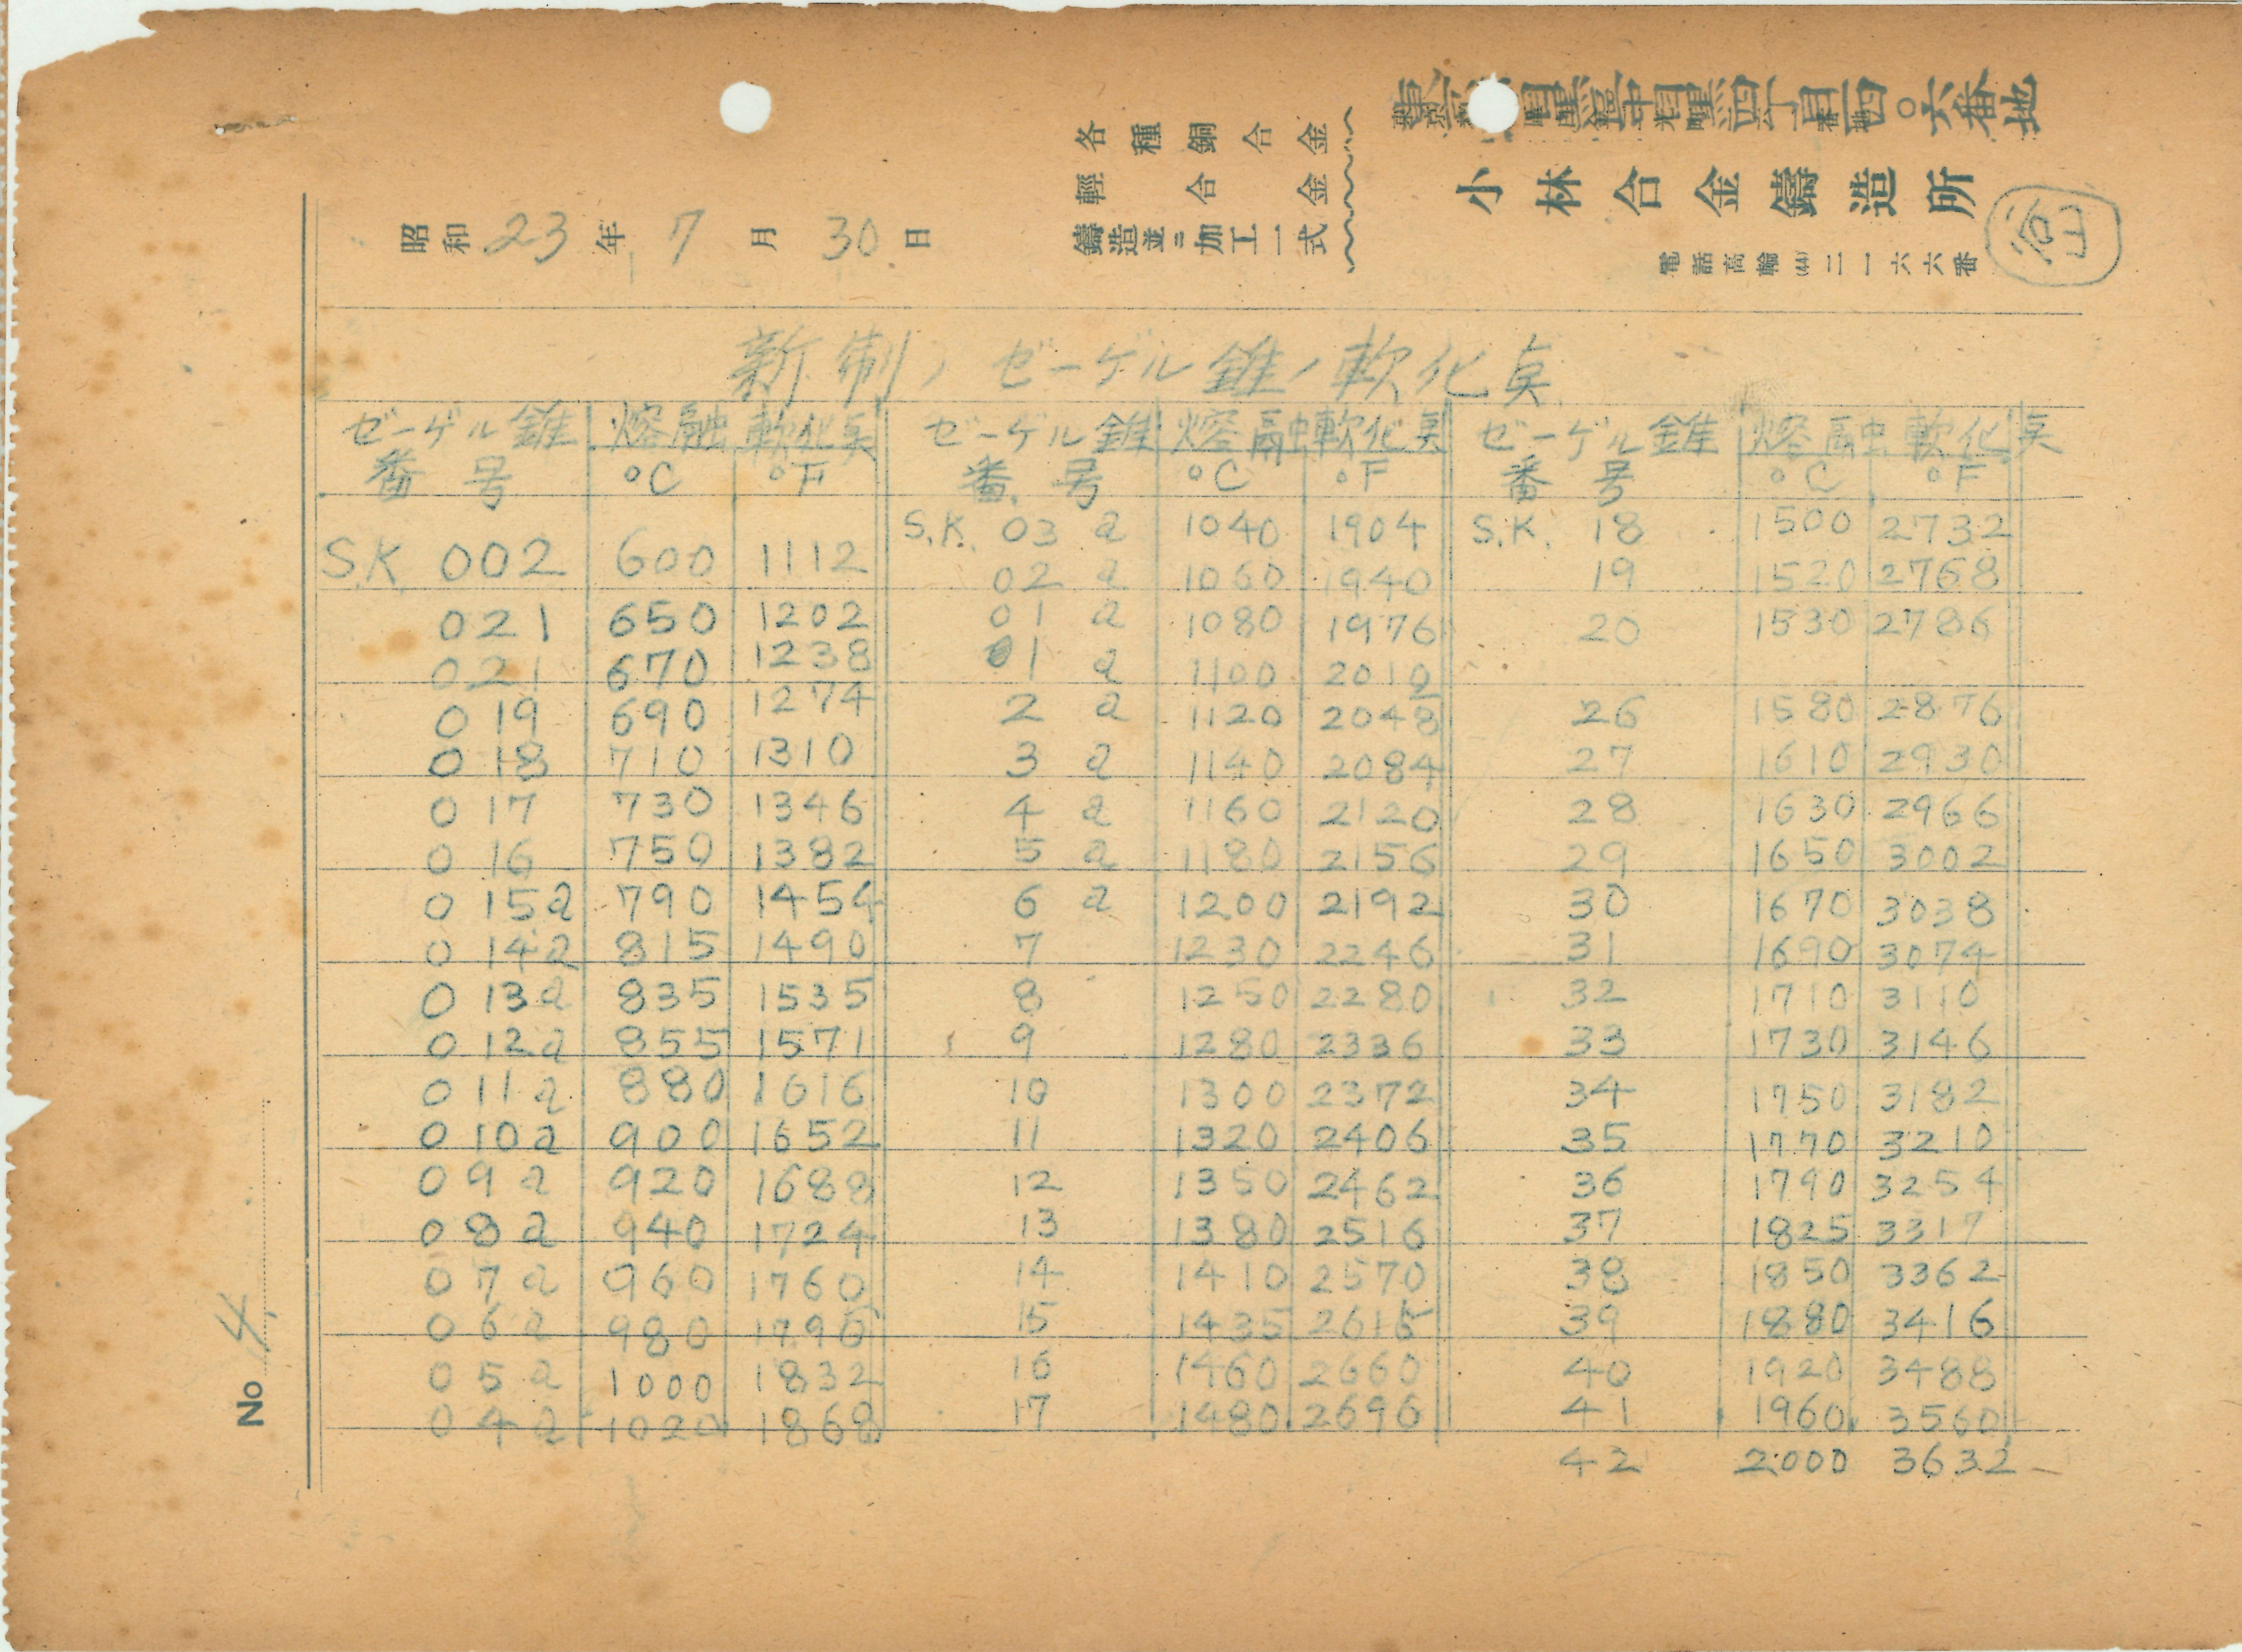 各種銅合金
輕合金
鑄造並ニ加工一式
目黒區中目黒四丁目一四〇六番地
小林合金鑄造所
電話高輪(44)二一六六番
谷山
昭和23年7月30日
新制ノゼーゲル錐ノ軟化点
ゼーゲル錐 熔融軟化点 ゼーゲル錐 熔融軟化点 ゼーゲル錐 熔融軟化点
番号 °C °F 番号 °C °F 番号 °C °F
S.K. 002 600 1112 S.K. 03a 1040 1904 S.K. 18 1500 2732
02a 1060 1940 19 1520 2768
021 650 1202 01a 1080 1976 20 1530 2786
021 670 1238 1a 1100 2012
019 690 1274 2a 1120 2048 26 1580 2876
018 710 1310 3a 1140 2084 27 1610 2930
017 730 1346 4a 1160 2120 28 1630 2966
016 750 1382 5a 1180 2156 29 1650 3002
015a 790 1454 6a 1200 2192 30 1670 3038
014a 815 1490 7 1230 2246 31 1690 3074
013a 835 1535 8 1250 2280 32 1710 3110
012a 855 1571 9 1280 2336 33 1730 3146
011a 880 1616 10 1300 2372 34 1750 3182
010a 900 1652 11 1320 2406 35 1770 3210
09a 920 1688 12 1350 2462 36 1790 3254
08a 940 1724 13 1380 2516 37 1825 3317
07a 960 1760 14 1410 2570 38 1850 3362
06a 980 1796 15 1435 2615 39 1880 3416
05a 1000 1832 16 1460 2660 40 1920 3488
04a 1020 1868 17 1480 2696 41 1960 3560
42 2000 3632
No 4